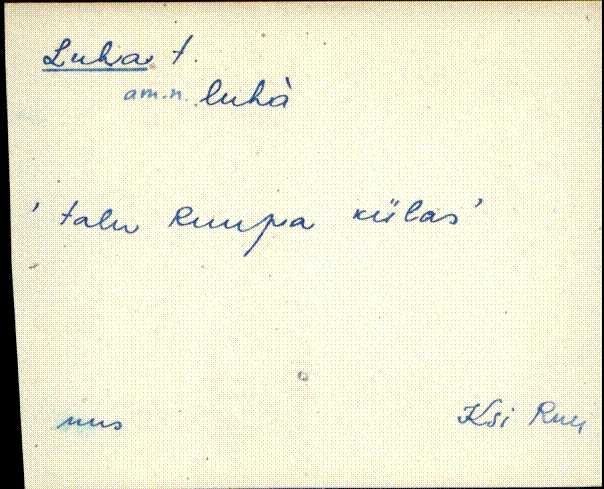 Luha t.
am.n. luhà
' talu Ruupa külas'
uus Ksi Ruu